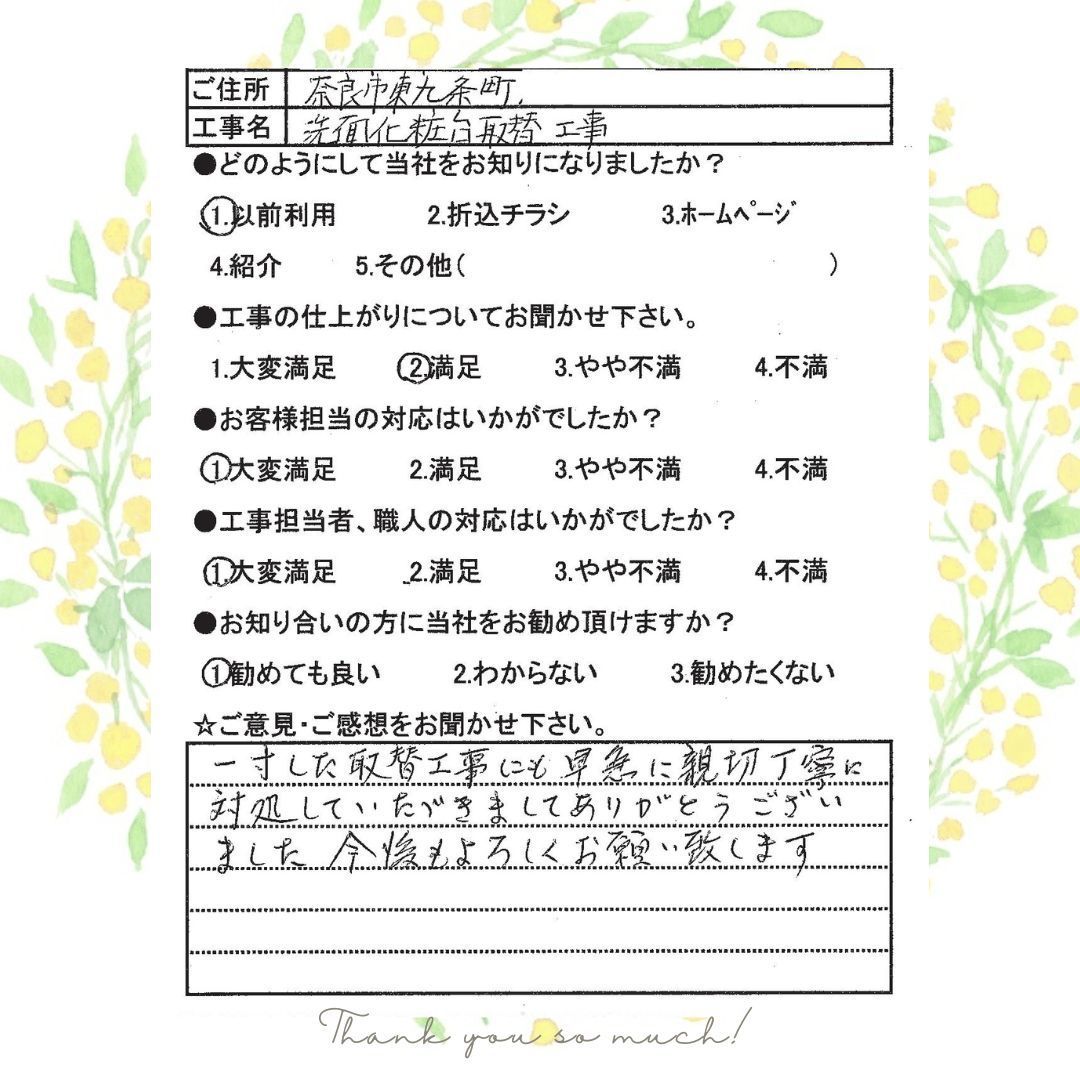 ご住所 奈良市東九条町.
工事名 洗面化粧台取替工事
●どのようにして当社をお知りになりましたか？
1.以前利用 2.折込チラシ 3.ﾎｰﾑﾍﾟｰｼﾞ
4.紹介 5.その他( )
●工事の仕上がりについてお聞かせ下さい。
1.大変満足 2.満足 3.やや不満 4.不満
●お客様担当の対応はいかがでしたか？
1.大変満足 2.満足 3.やや不満 4.不満
●工事担当者、職人の対応はいかがでしたか？
1.大変満足 2.満足 3.やや不満 4.不満
●お知り合いの方に当社をお勧め頂けますか？
1.勧めても良い 2.わからない 3.勧めたくない
☆ご意見・ご感想をお聞かせ下さい。
一寸した取替工事にも早急に親切丁寧に
対処していただきましてありがとうござい
ました 今後もよろしくお願い致します
Thank you so much!